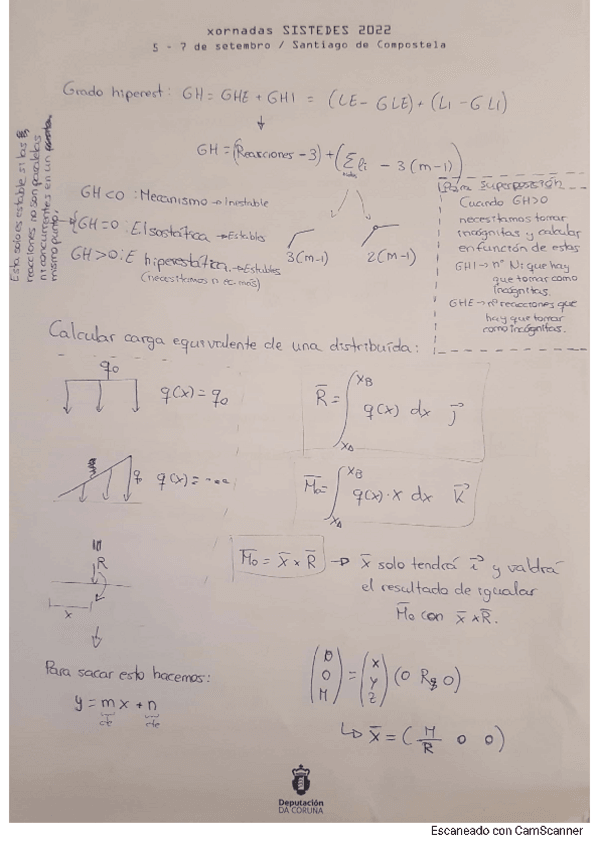 xornadas SISTEDES 2022
5 - 7 de setembro / Santiago de Compostela
Grado hiperest: GH = GHE + GHI = (LE - GLE) + (LI - GLI)
↓
GH = (Reacciones - 3) + (Σ li - 3(m-1))
Esto solo es estable si las
reacciones no son paralelas
ni concurrentes en un
mismo punto,
GH<0: Mecanismo → Inestable
GH=0: E Isostática → Estables
GH>0: E hiperestática → Estables
(necesitamos n ec más)
3(m-1)
2(m-1)
Para superposición
Cuando GH>0
necesitamos tomar
incógnitas y calcular
en función de estas
GHI → nº Ni que hay
que tomar como
incógnitas.
GHE → nº reacciones que
hay que tomar
como incógnitas.
Calcular carga equivalente de una distribuída:
q0
q(x) = q0
R̄ = ∫ xA xB q(x) dx j⃗
q0
q(x) = ---
M̄o = ∫ xA xB q(x)·x dx k⃗
R
x
M̄o = x̄ × R̄ → x̄ solo tendrá i⃗ y valdrá
el resultado de igualar
M̄o con x̄ × R̄.
Para sacar esto hacemos:
y = mx + n
(0 0 M) = (x y z) (0 R 0)
↳ x̄ = (M/R 0 0)
Deputación
DA CORUÑA
Escaneado con CamScanner